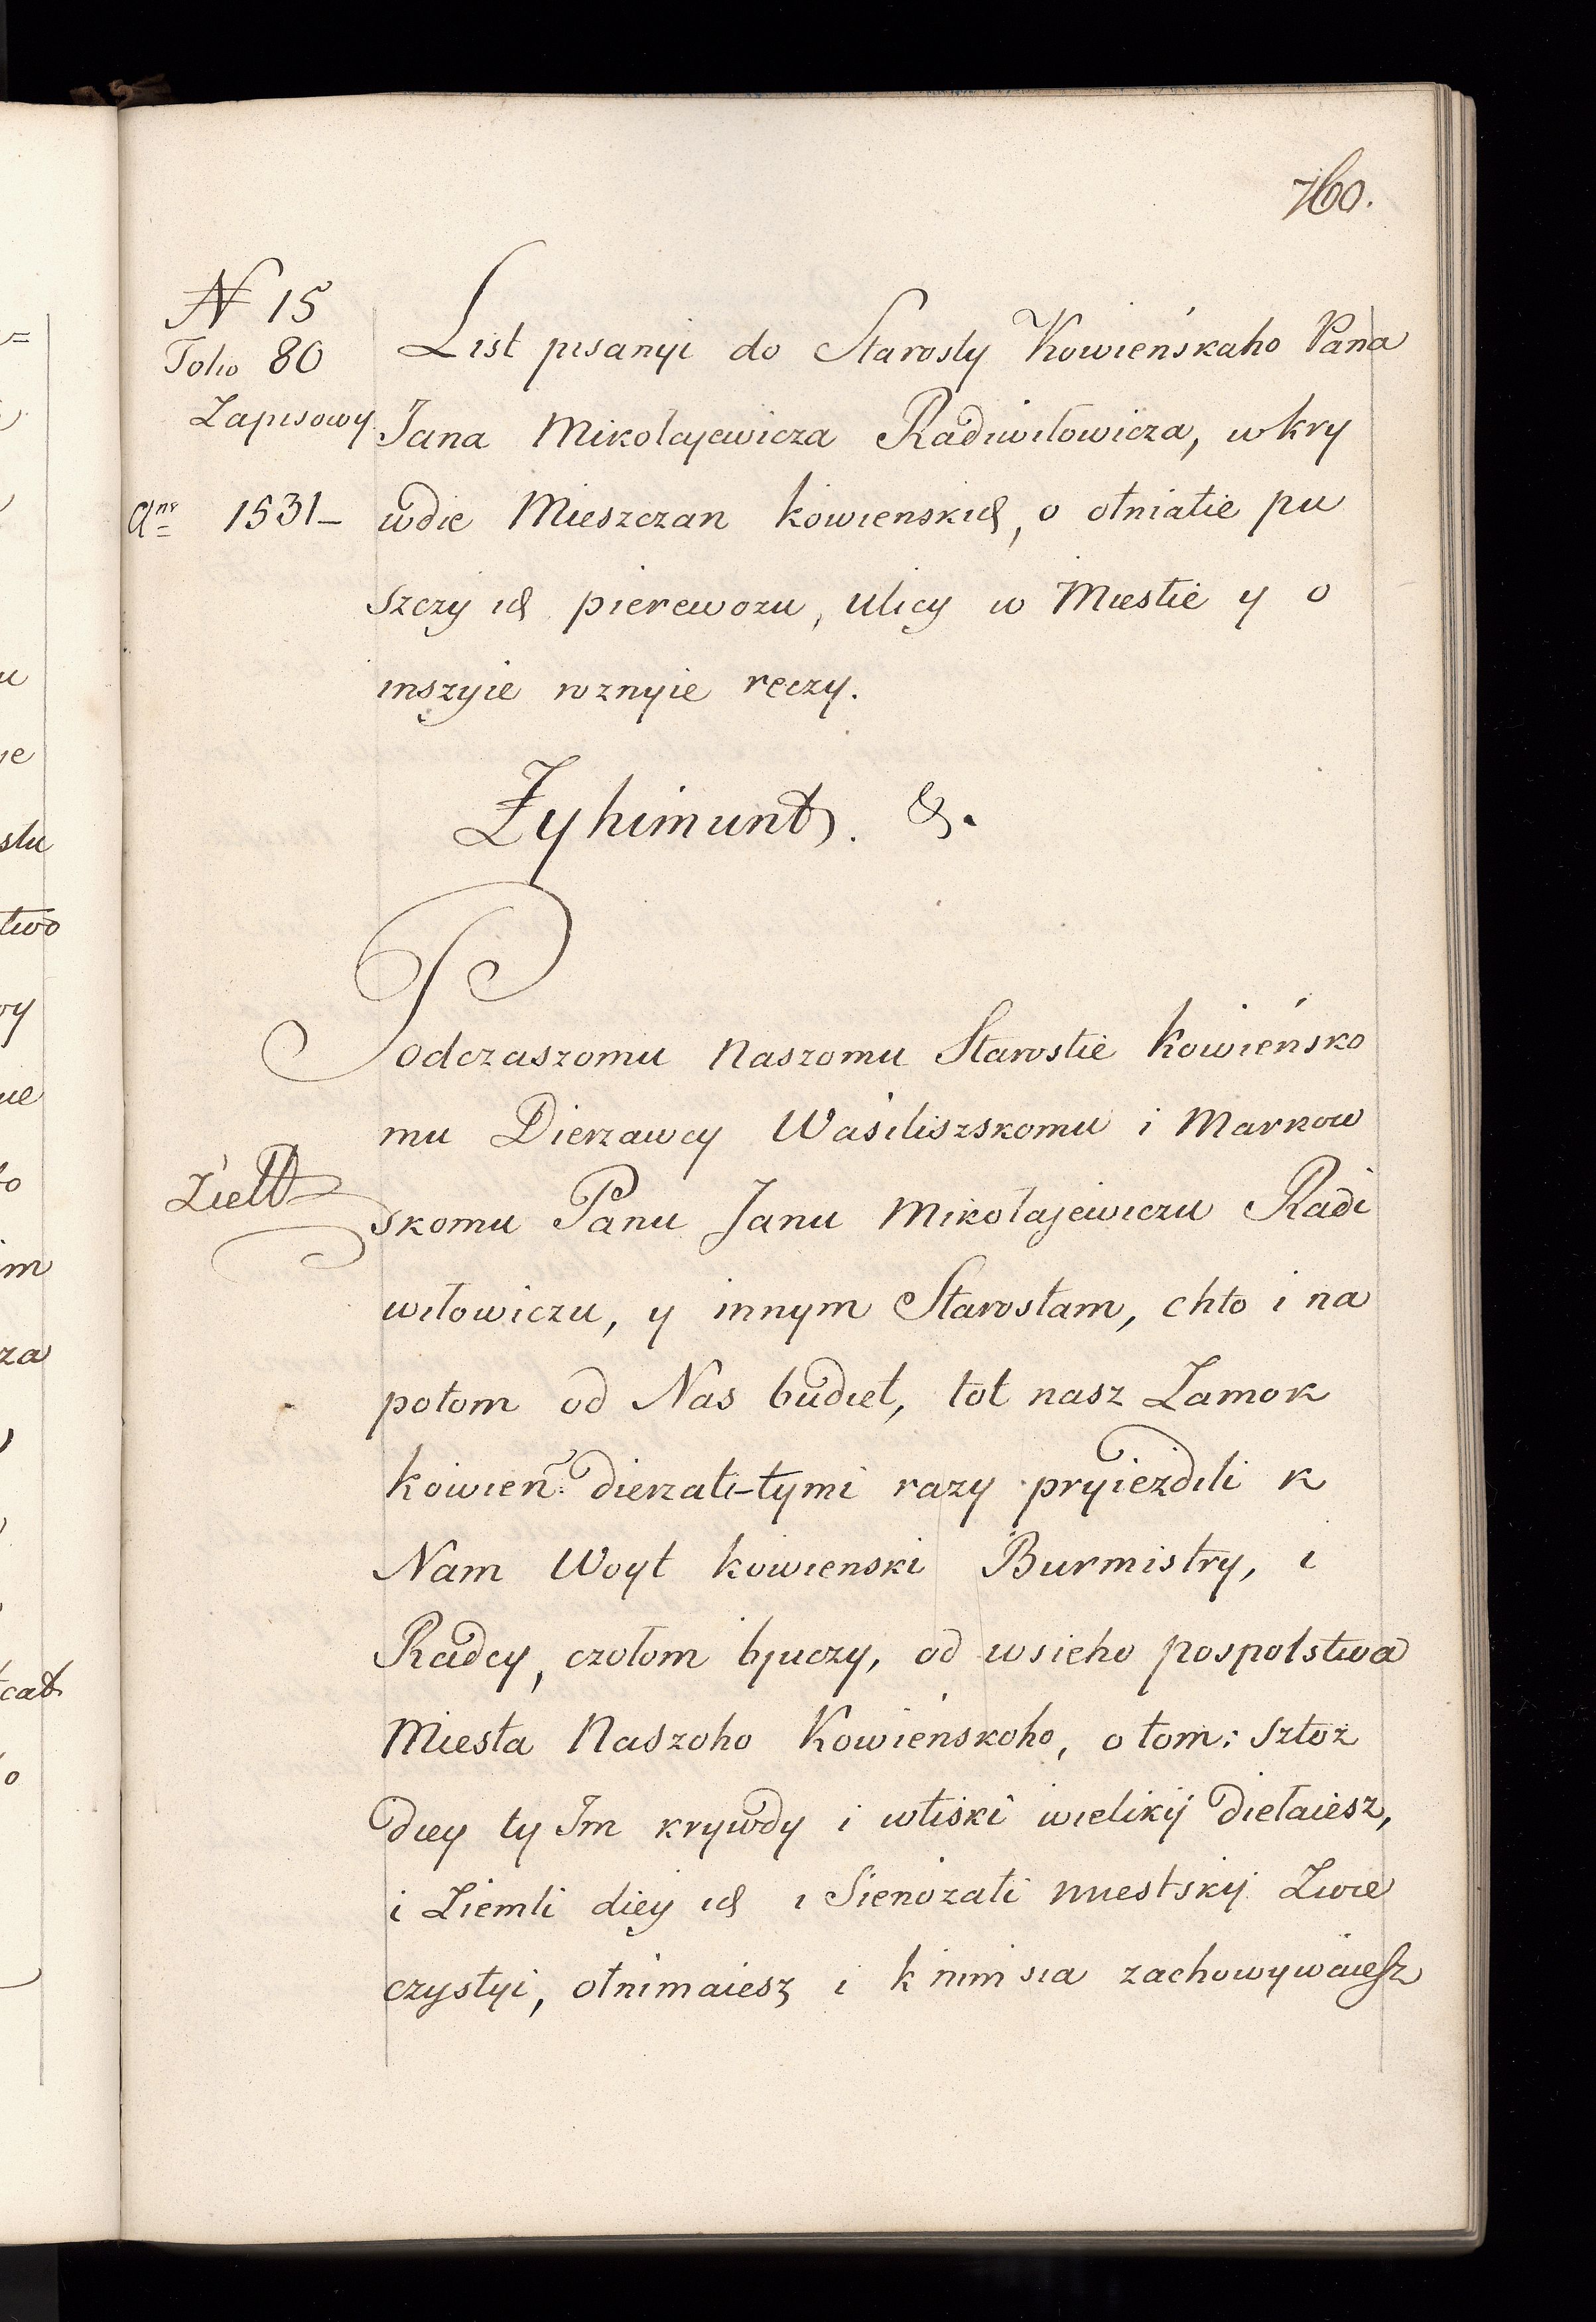 760.
N 15
Folio 80
Zapisowy
Ano 1531 –
List pisanyi do Starosty Kowieńskaho Pana
Jana Mikołajewicza Radiwiłowicza, w kry
wdie Mieszczan kowienskich, o otniatie pu
szczy ich pierewozu, ulicy w Miestie y o
inszyie roznyie reczy.
Zyhimunt. &.
Podczaszomu Naszomu Starostie kowieńsko
mu Dierzawcy Wasiliszskomu i Markow
skomu Panu Janu Mikołajewiczu Radi
wiłowiczu, y innym Starostam, chto i na
potom od Nas budiet, tot nasz Zamok
kowień: dierzati – tymi razy pryiezdili k
Nam Woyt kowienski Burmistry, i
Radcy, czołom bjuczy, od wsieho pospolstwa
Miesta Naszoho Kowieńskoho, o tom: sztoż
diey ty Im krywdy i wtiski wielikij diełaiesz,
i Ziemli diey ich i Sienożati miestskij Zwie
czystyi, otnimaiesz i k nim sia zachowywaiesz